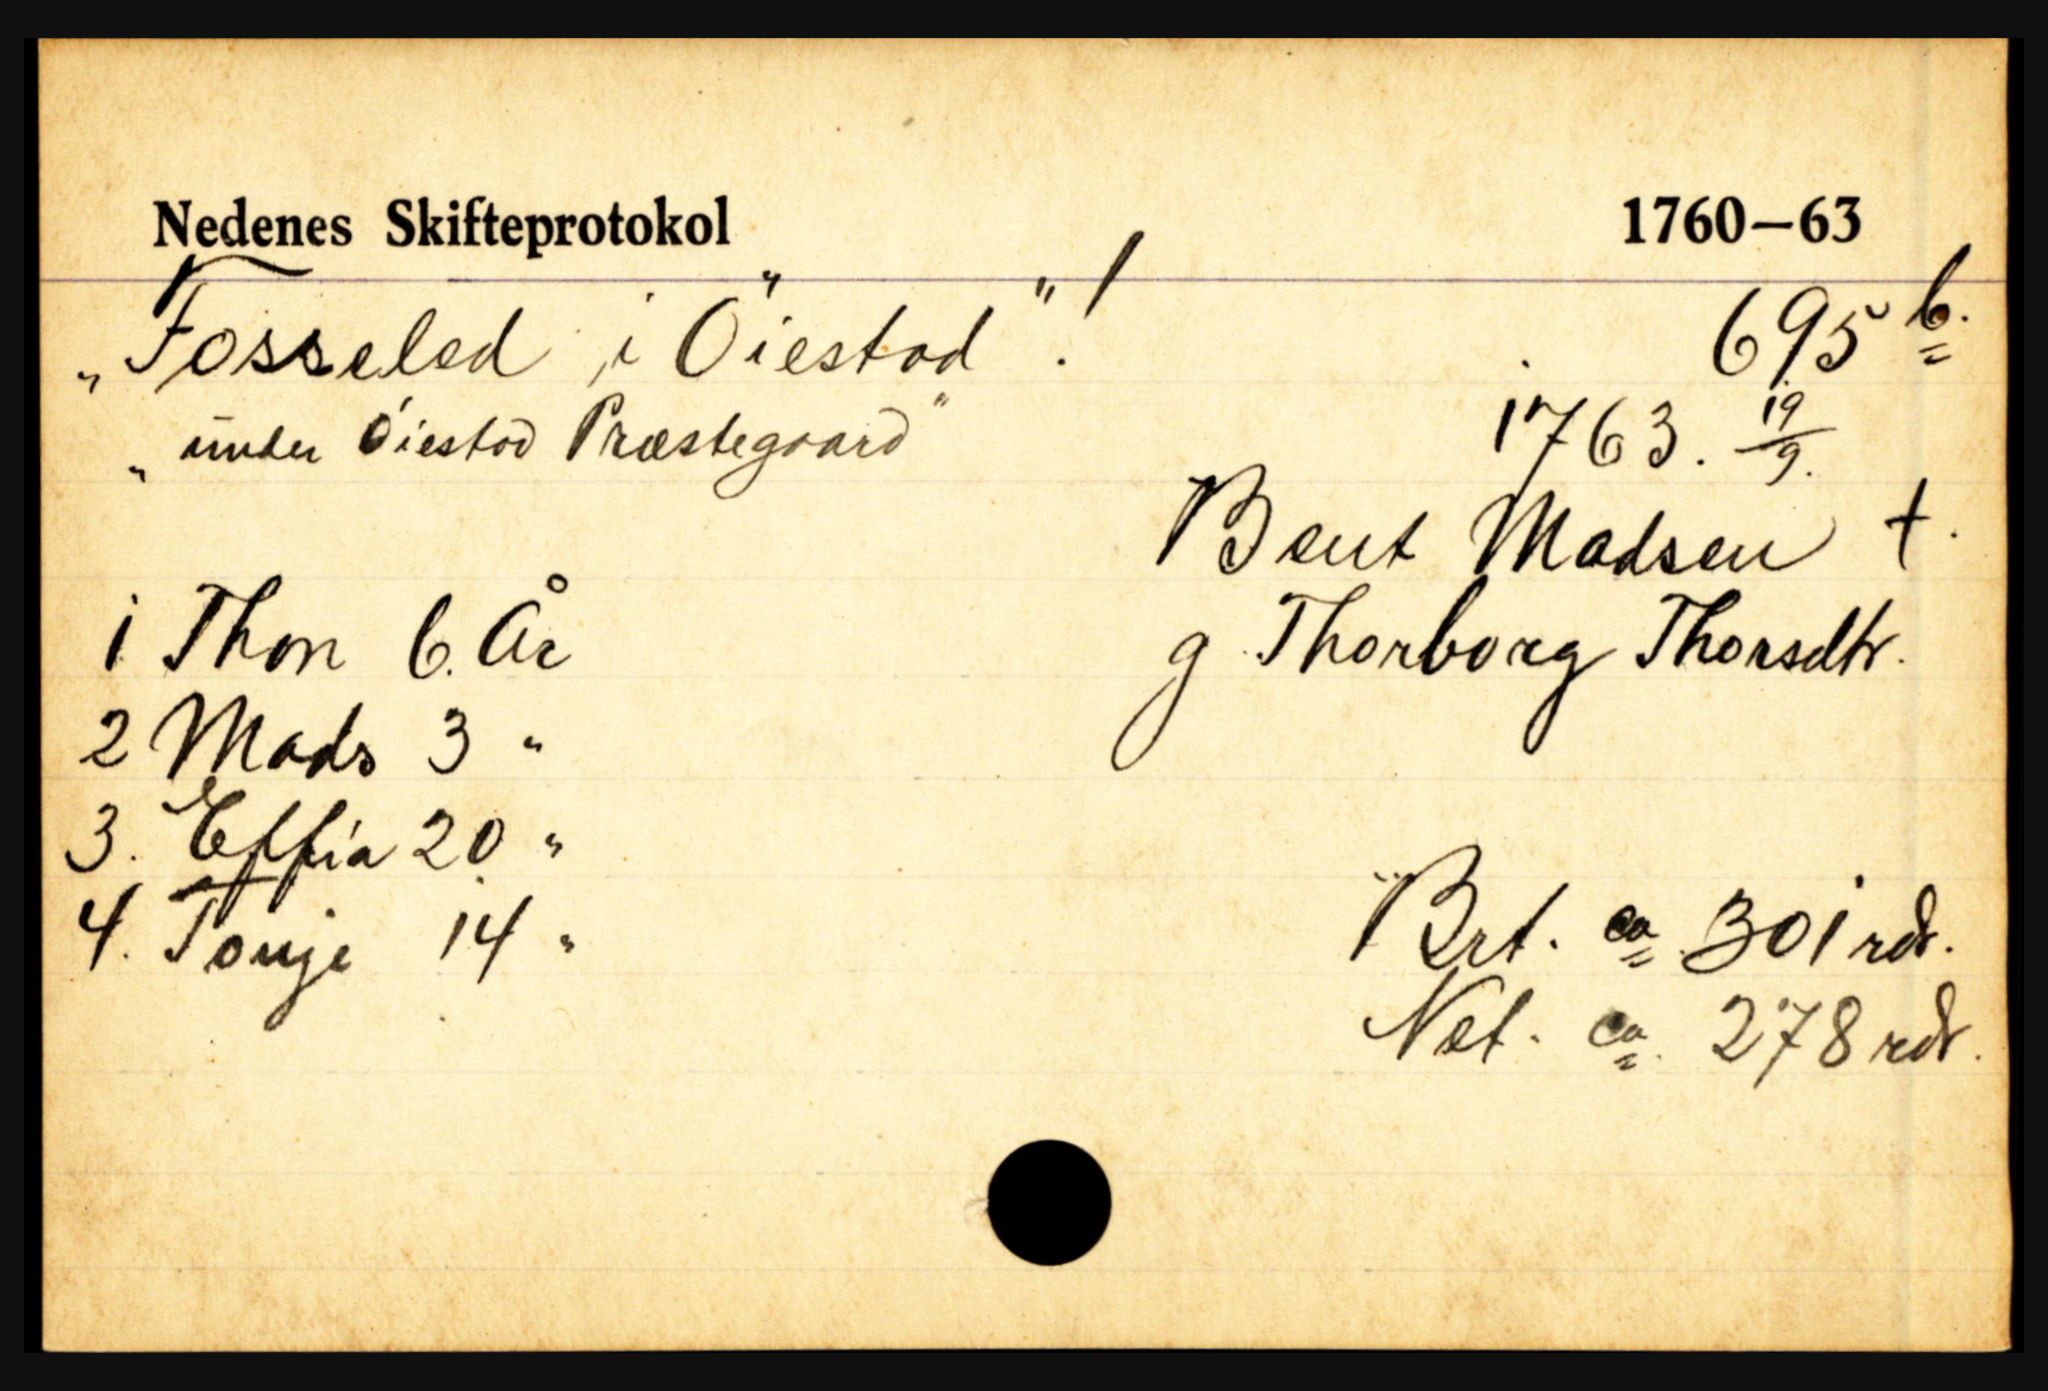 Nedenes Skifteprotokol 1760—63
„Fosseled i Öiestad"!
695 b.
„under Öiestad Præstegaard"
1763. 19/9.
Bent Madsen †.
g Thorborg Thorsdtr.
1 Thor 6. År
2 Mads 3 "
3. Effia 20 "
4. Tonje 14 "
Brt. ca 301 rdr.
Net. ca. 278 rdr.